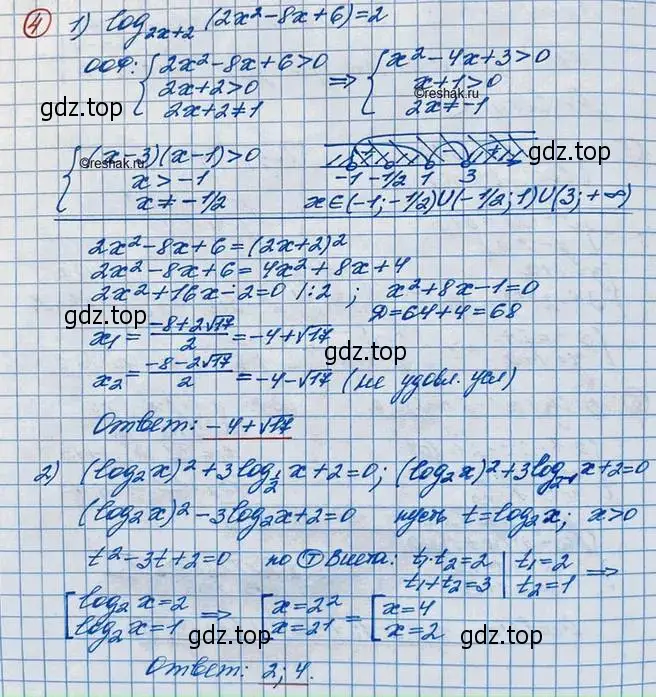 ④ 1) log₂ₓ₊₂ (2x²-8x+6)=2
ООФ: { 2x²-8x+6>0 ⇒ { x²-4x+3>0
2x+2>0 x+1>0
2x+2≠1 2x≠-1
gdz.top ©reshak.ru
{ (x-3)(x-1)>0
©reshak.ru gdz.top
x>-1 -1 -1/2 1 3
x≠-1/2 x∈(-1;-1/2)∪(-1/2;1)∪(3;+∞)
2x²-8x+6=(2x+2)²
2x²-8x+6=4x²+8x+4
2x²+16x-2=0 /:2 ; x²+8x-1=0
gdz.top Д=64+4=68
x₁= (-8+2√17)/2 =-4+√17
gdz.top
x₂= (-8-2√17)/2 =-4-√17 (не удовл. усл)
Ответ: -4+√17
gdz.top
2) (log₂x)²+3log_{1/2} x+2=0; (log₂x)²+3log₂₋₁x+2=0
(log₂x)²-3log₂x+2=0 пусть t=log₂x; x>0
gdz.top
t²-3t+2=0 по Ⓣ Виета: t₁·t₂=2 | t₁=2 ⇒
t₁+t₂=3 | t₂=1
[ log₂x=2 ⇒ [ x=2² = [ x=4
log₂x=1 x=2¹ x=2
gdz.top gdz.top
Ответ: 2; 4.